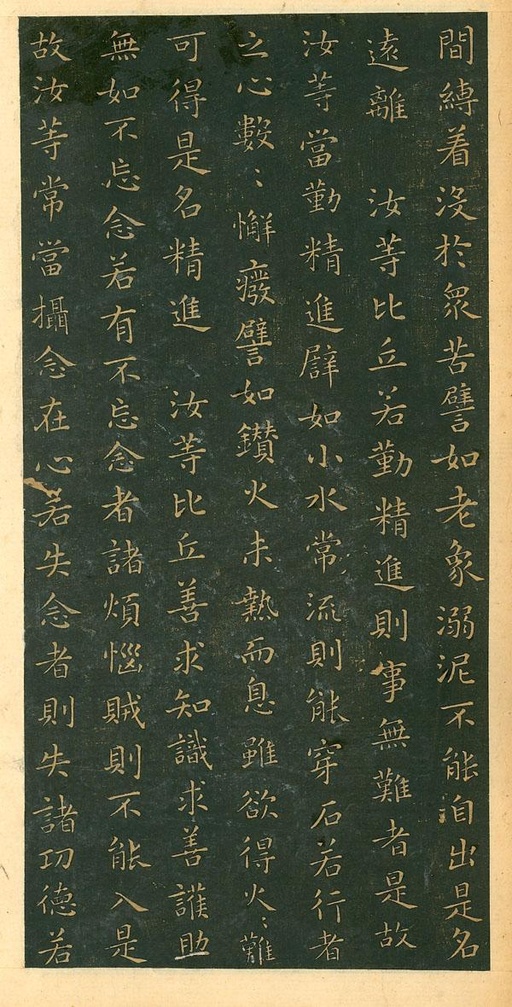 間縛着沒於衆苦譬如老象溺泥不能自出是名
遠離　汝等比丘若勤精進則事無難者是故
汝等當勤精進譬如小水常流則能穿石若行者
之心數〻懈癈譬如鑚火未熱而息雖欲得火〻難
可得是名精進　汝等比丘善求知識求善護助
無如不忘念若有不忘念者諸煩惱賊則不能入是
故汝等常當攝念在心若失念者則失諸功德若